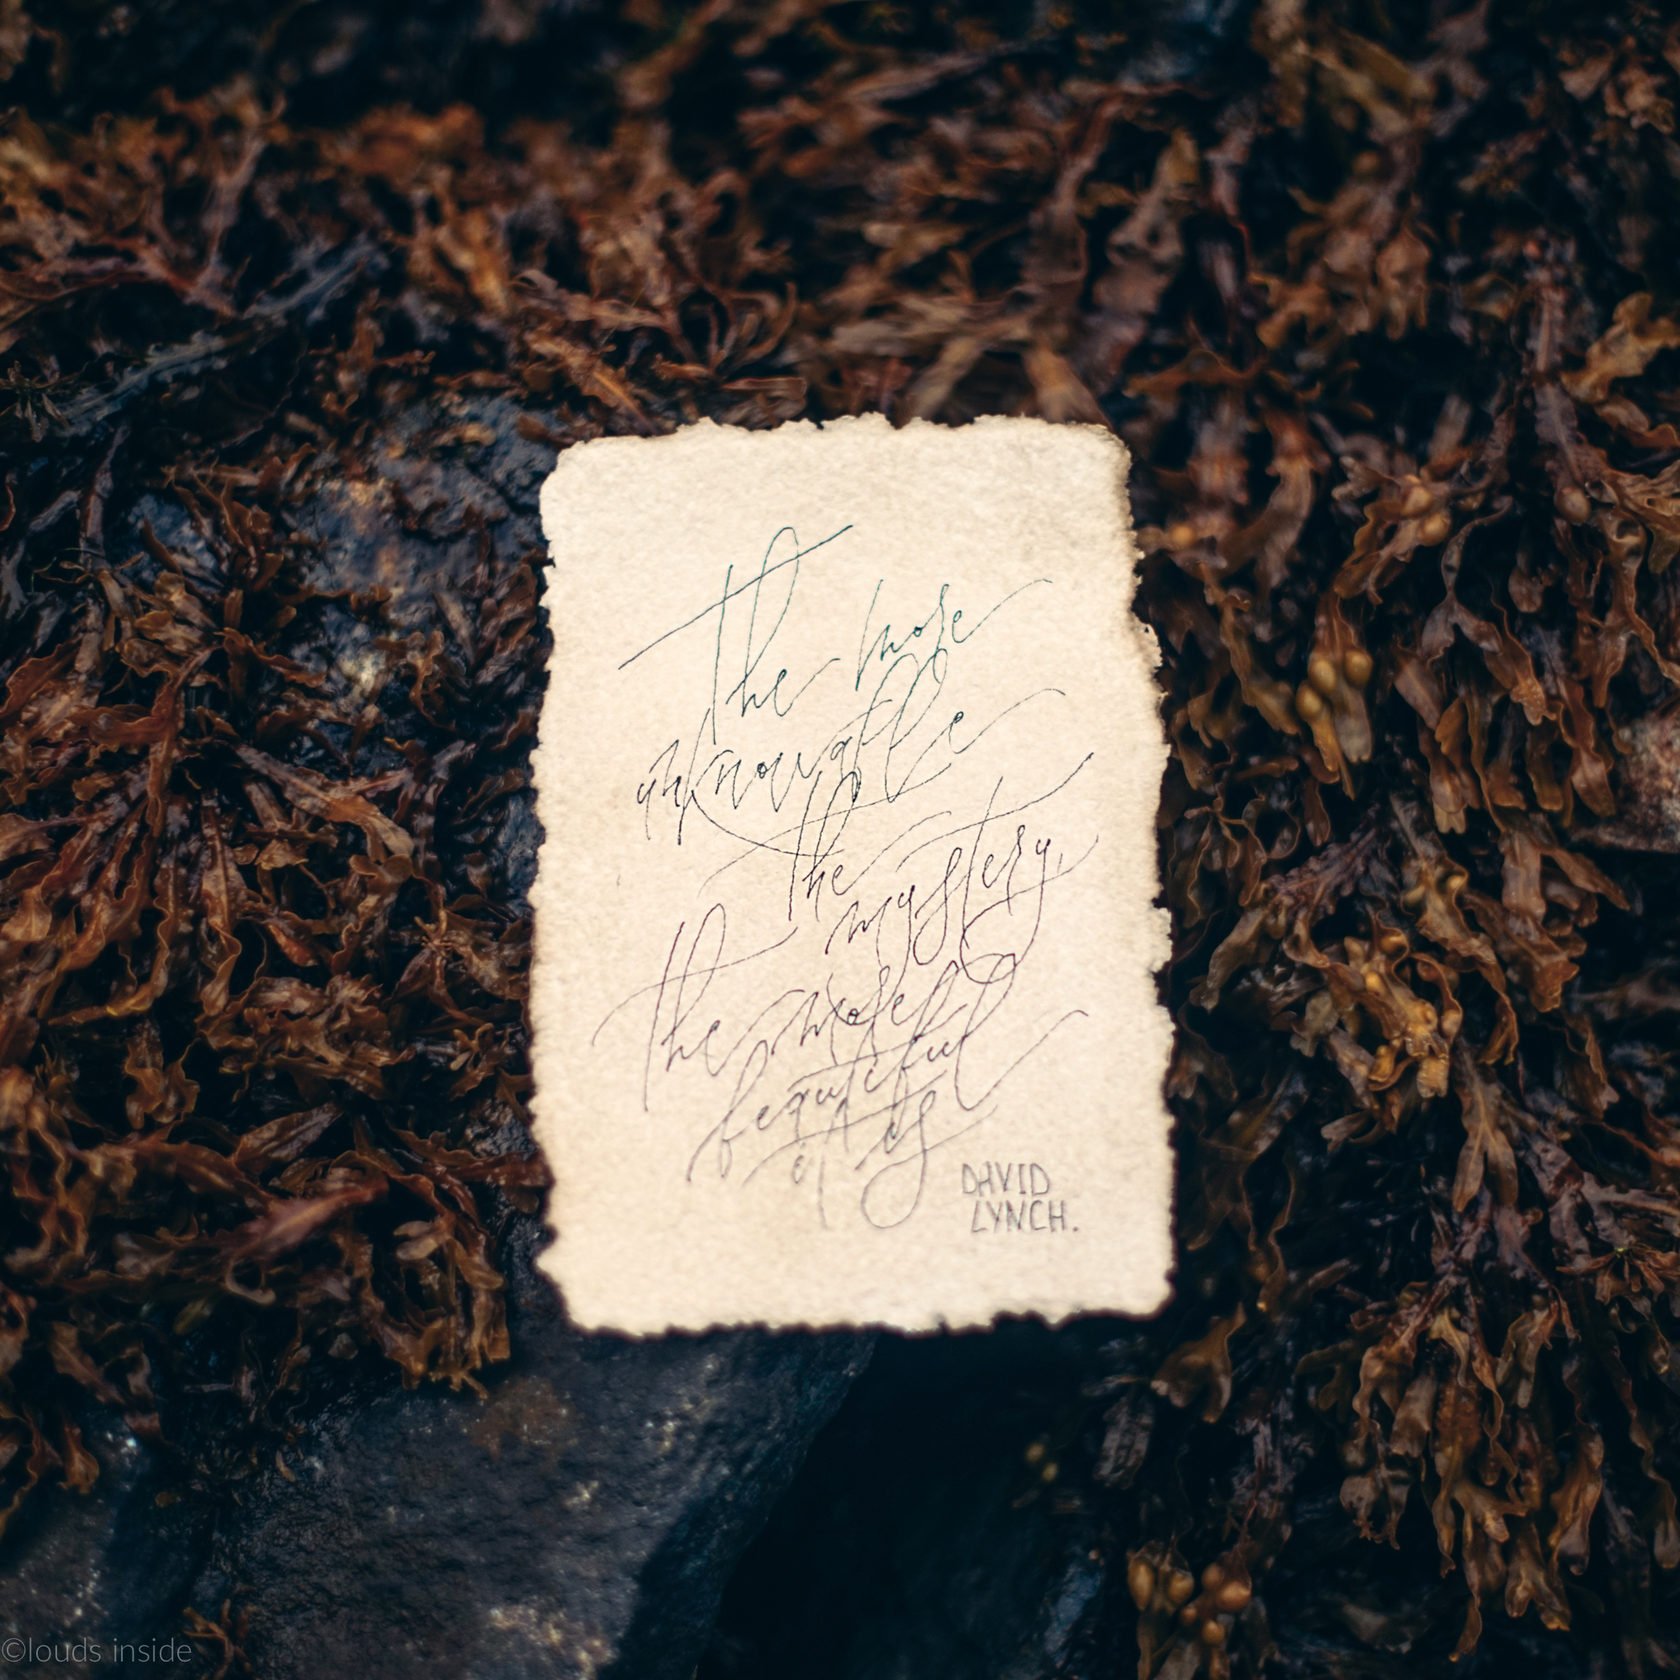 The more
unknowable
the
mystery,
the more
beautiful
it is
DAVID
LYNCH.
©louds inside